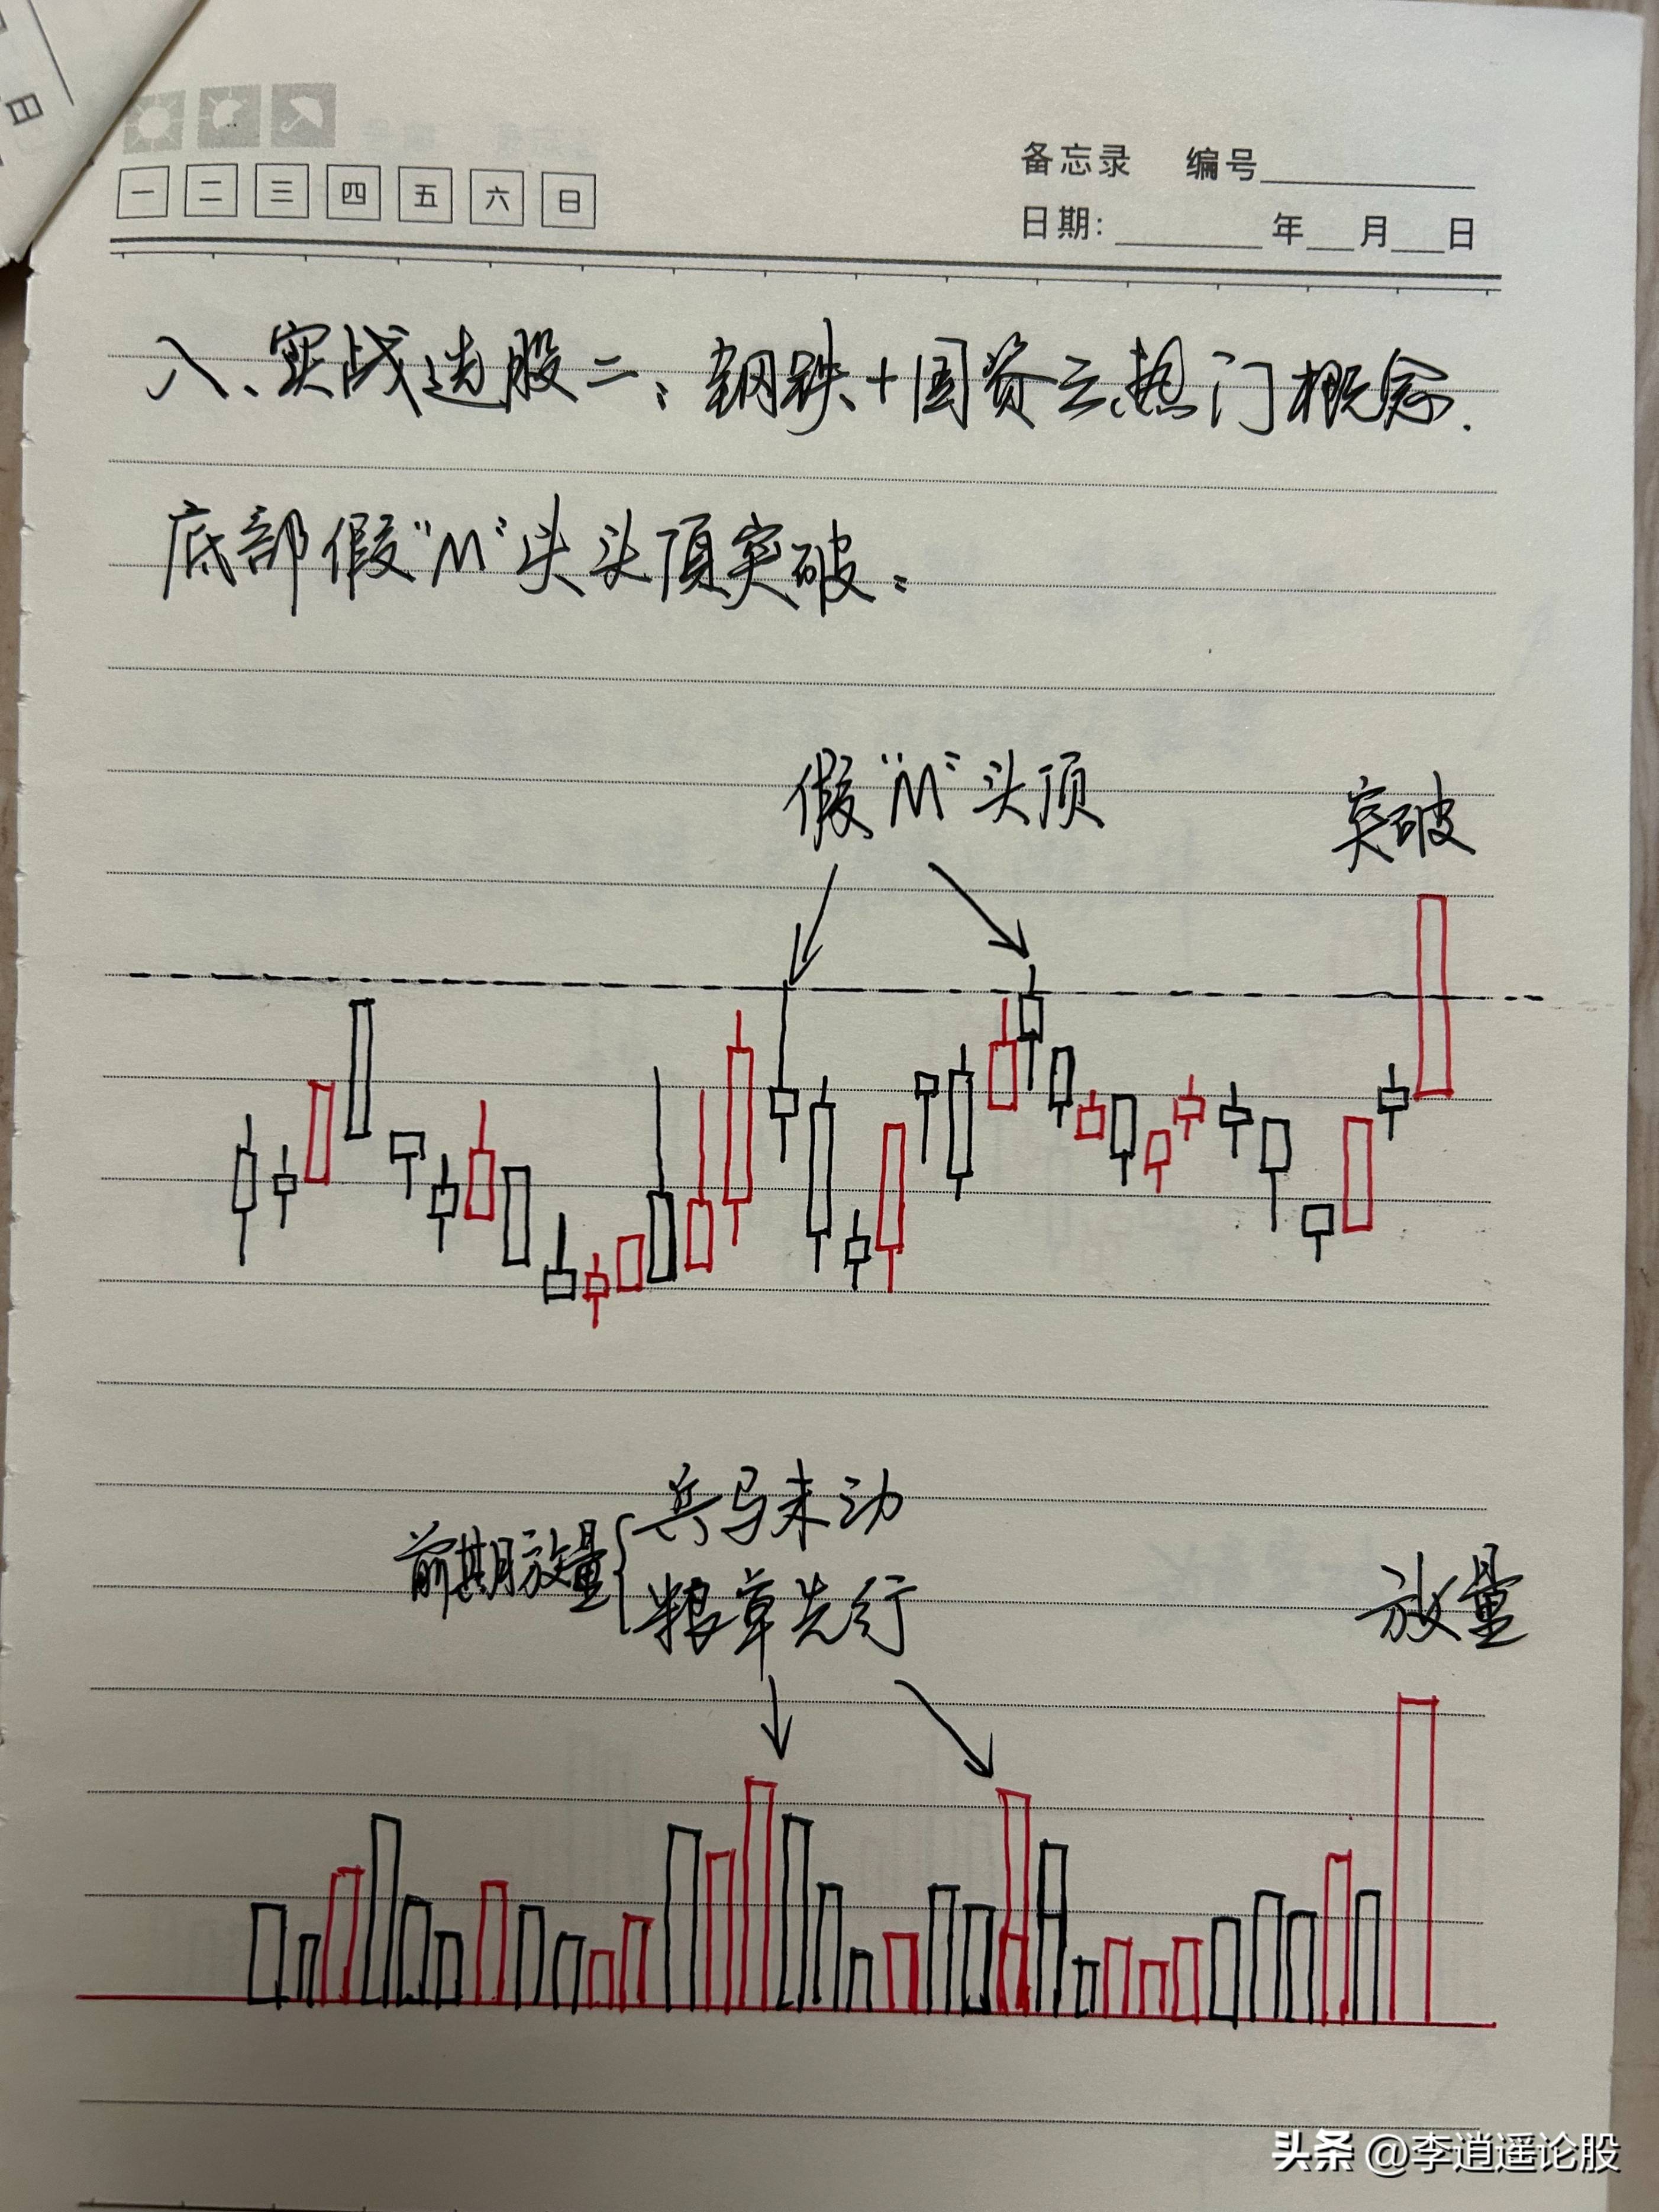 日
一 二 三 四 五 六 日
备忘录 编号
日期: 年 月 日
八、实战选股二:钢铁+国资云热门概念.
底部假“M”头头顶突破:
假“M”头顶
突破
前期放量{兵马未动
粮草先行
放量
头条 @李逍遥论股